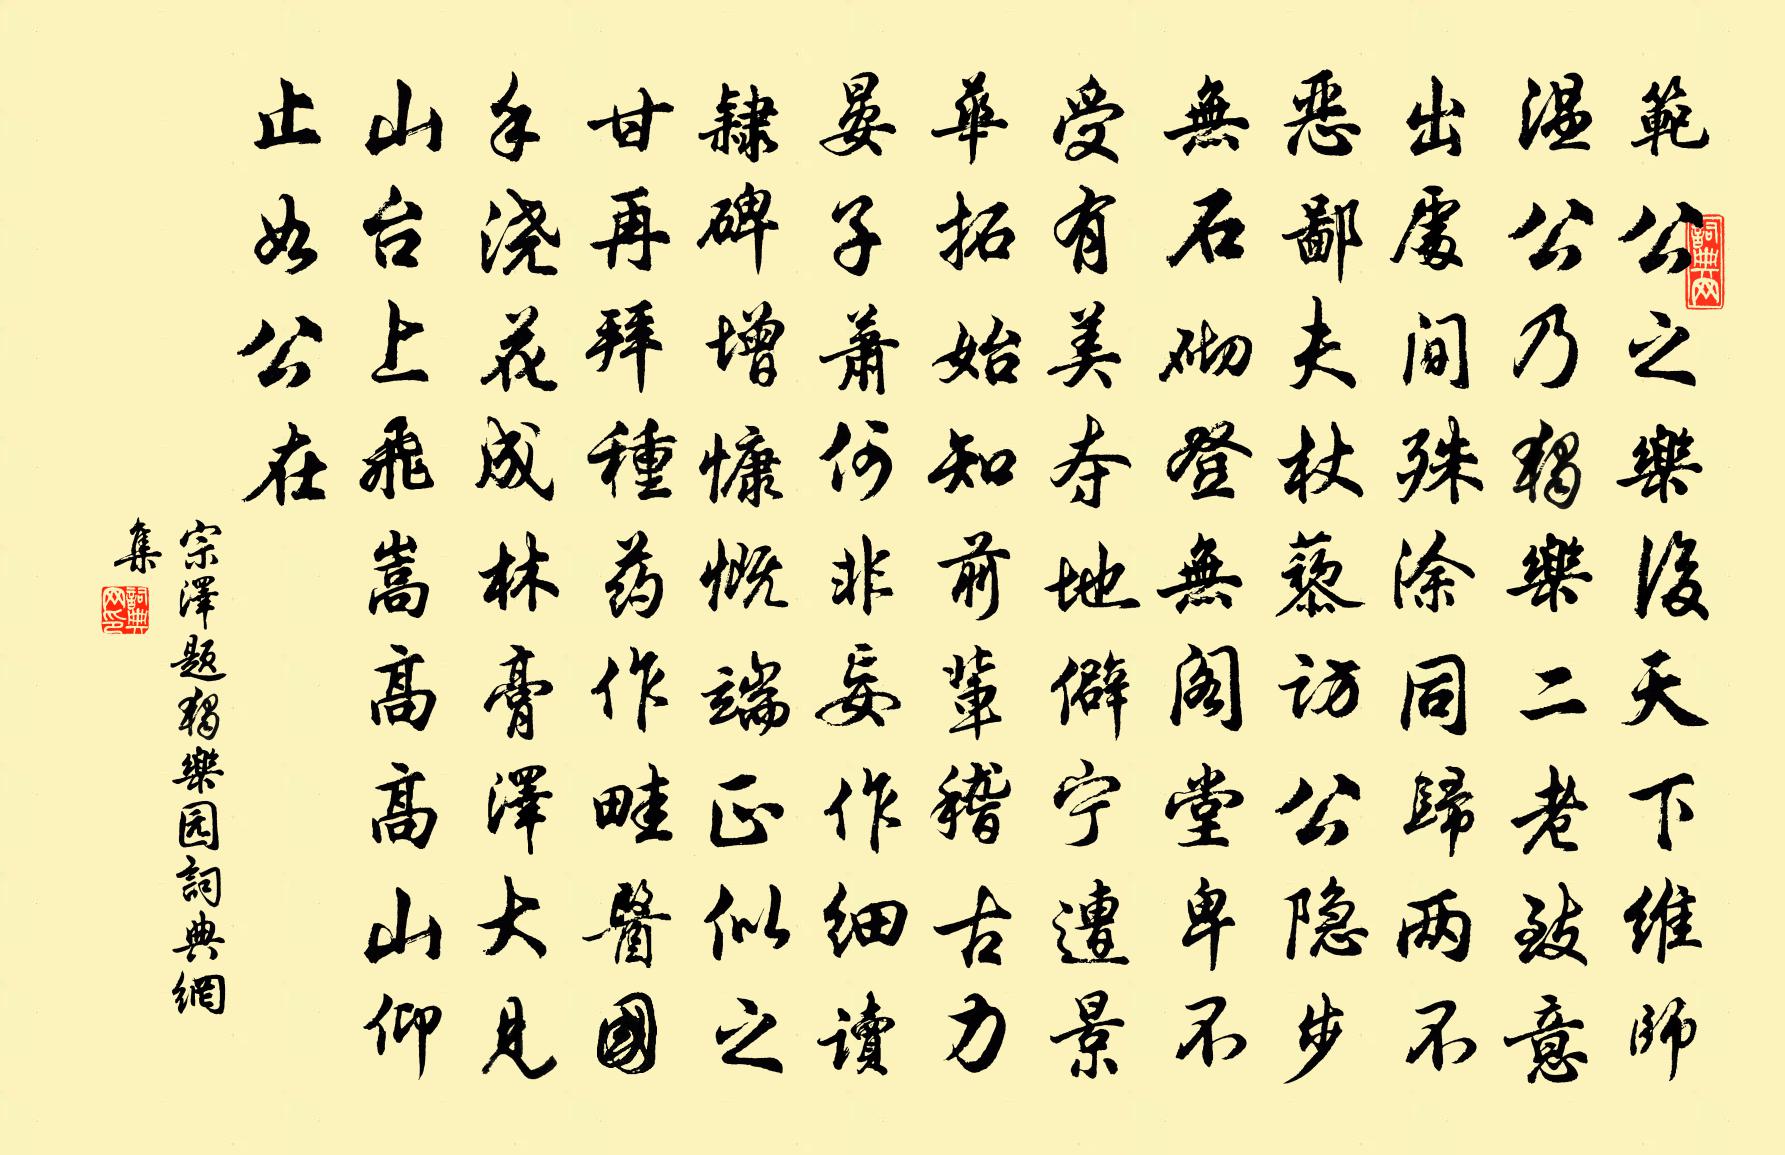 範公之樂後天下維師
溫公乃獨樂二老致意
出處間殊涂同歸兩不
惡鄙夫杖藜訪公隐步
無石砌登無阁堂卑不
受有美夺地僻宁遭景
華拓始知前輩稽古力
晏子蕭何非妄作细讀
隸碑增慷慨端正似之
甘再拜種药作畦醫國
手浇花成林膏澤大見
山台上飛嵩高高山仰
止如公在
宗澤题獨樂园詞典網
集
詞典网
詞典网印